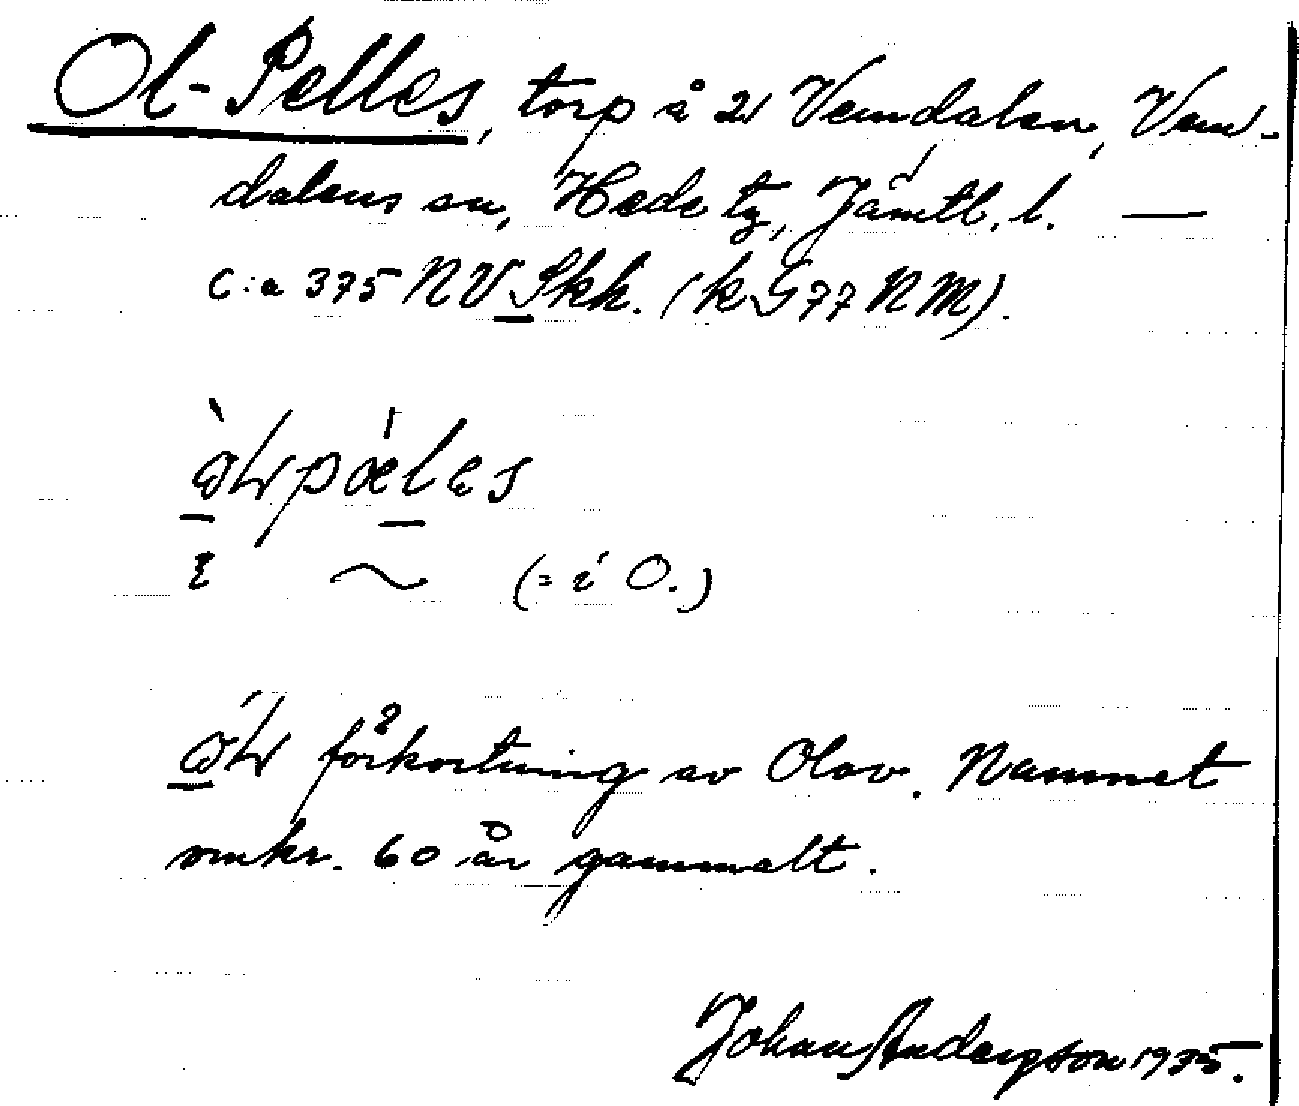 Ol-Pelles, torp å 21 Vemdalen, Vem-
dalens sn, Hede tg, Jämtl. l. —
c:a 375 NV Skh. (k G 77 NM).
(= i O.)
förkortning av Olov. Namnet
omkr. 60 år gammalt.
Johan Anderzson 1935.